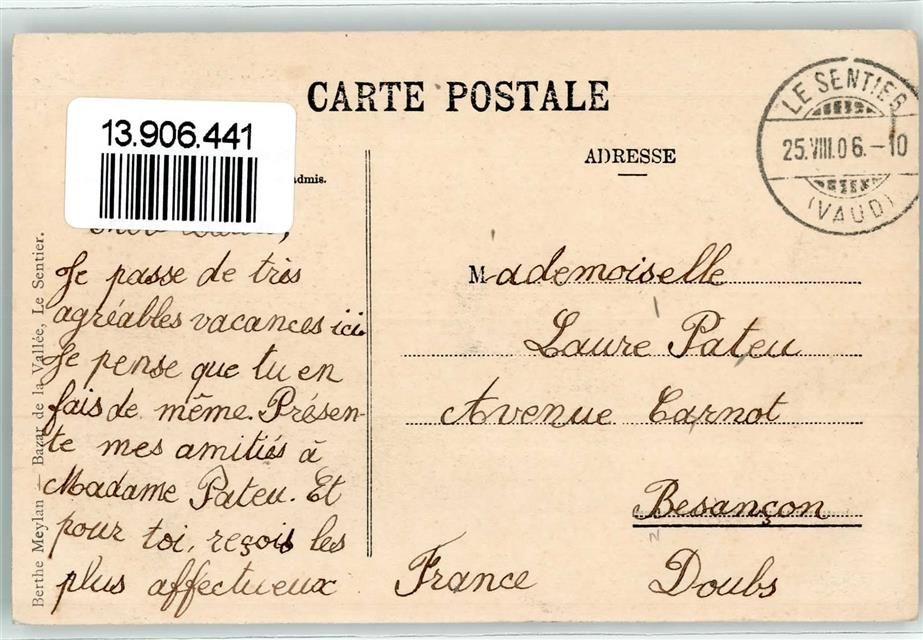 CARTE POSTALE
13.906.441
admis.
ADRESSE
LE SENTIER
25.VIII.06.-10
(VAUD)
Je passe de très
agréables vacances ici.
Je pense que tu en
fais de même. Présen-
te mes amitiés à
Madame Pateu. Et
pour toi, reçois les
plus affectueux
Mademoiselle
Laure Pateu
Avenue Carnot
Besançon
France Doubs
Berthe Meylan – Bazar de la Vallée, Le Sentier.